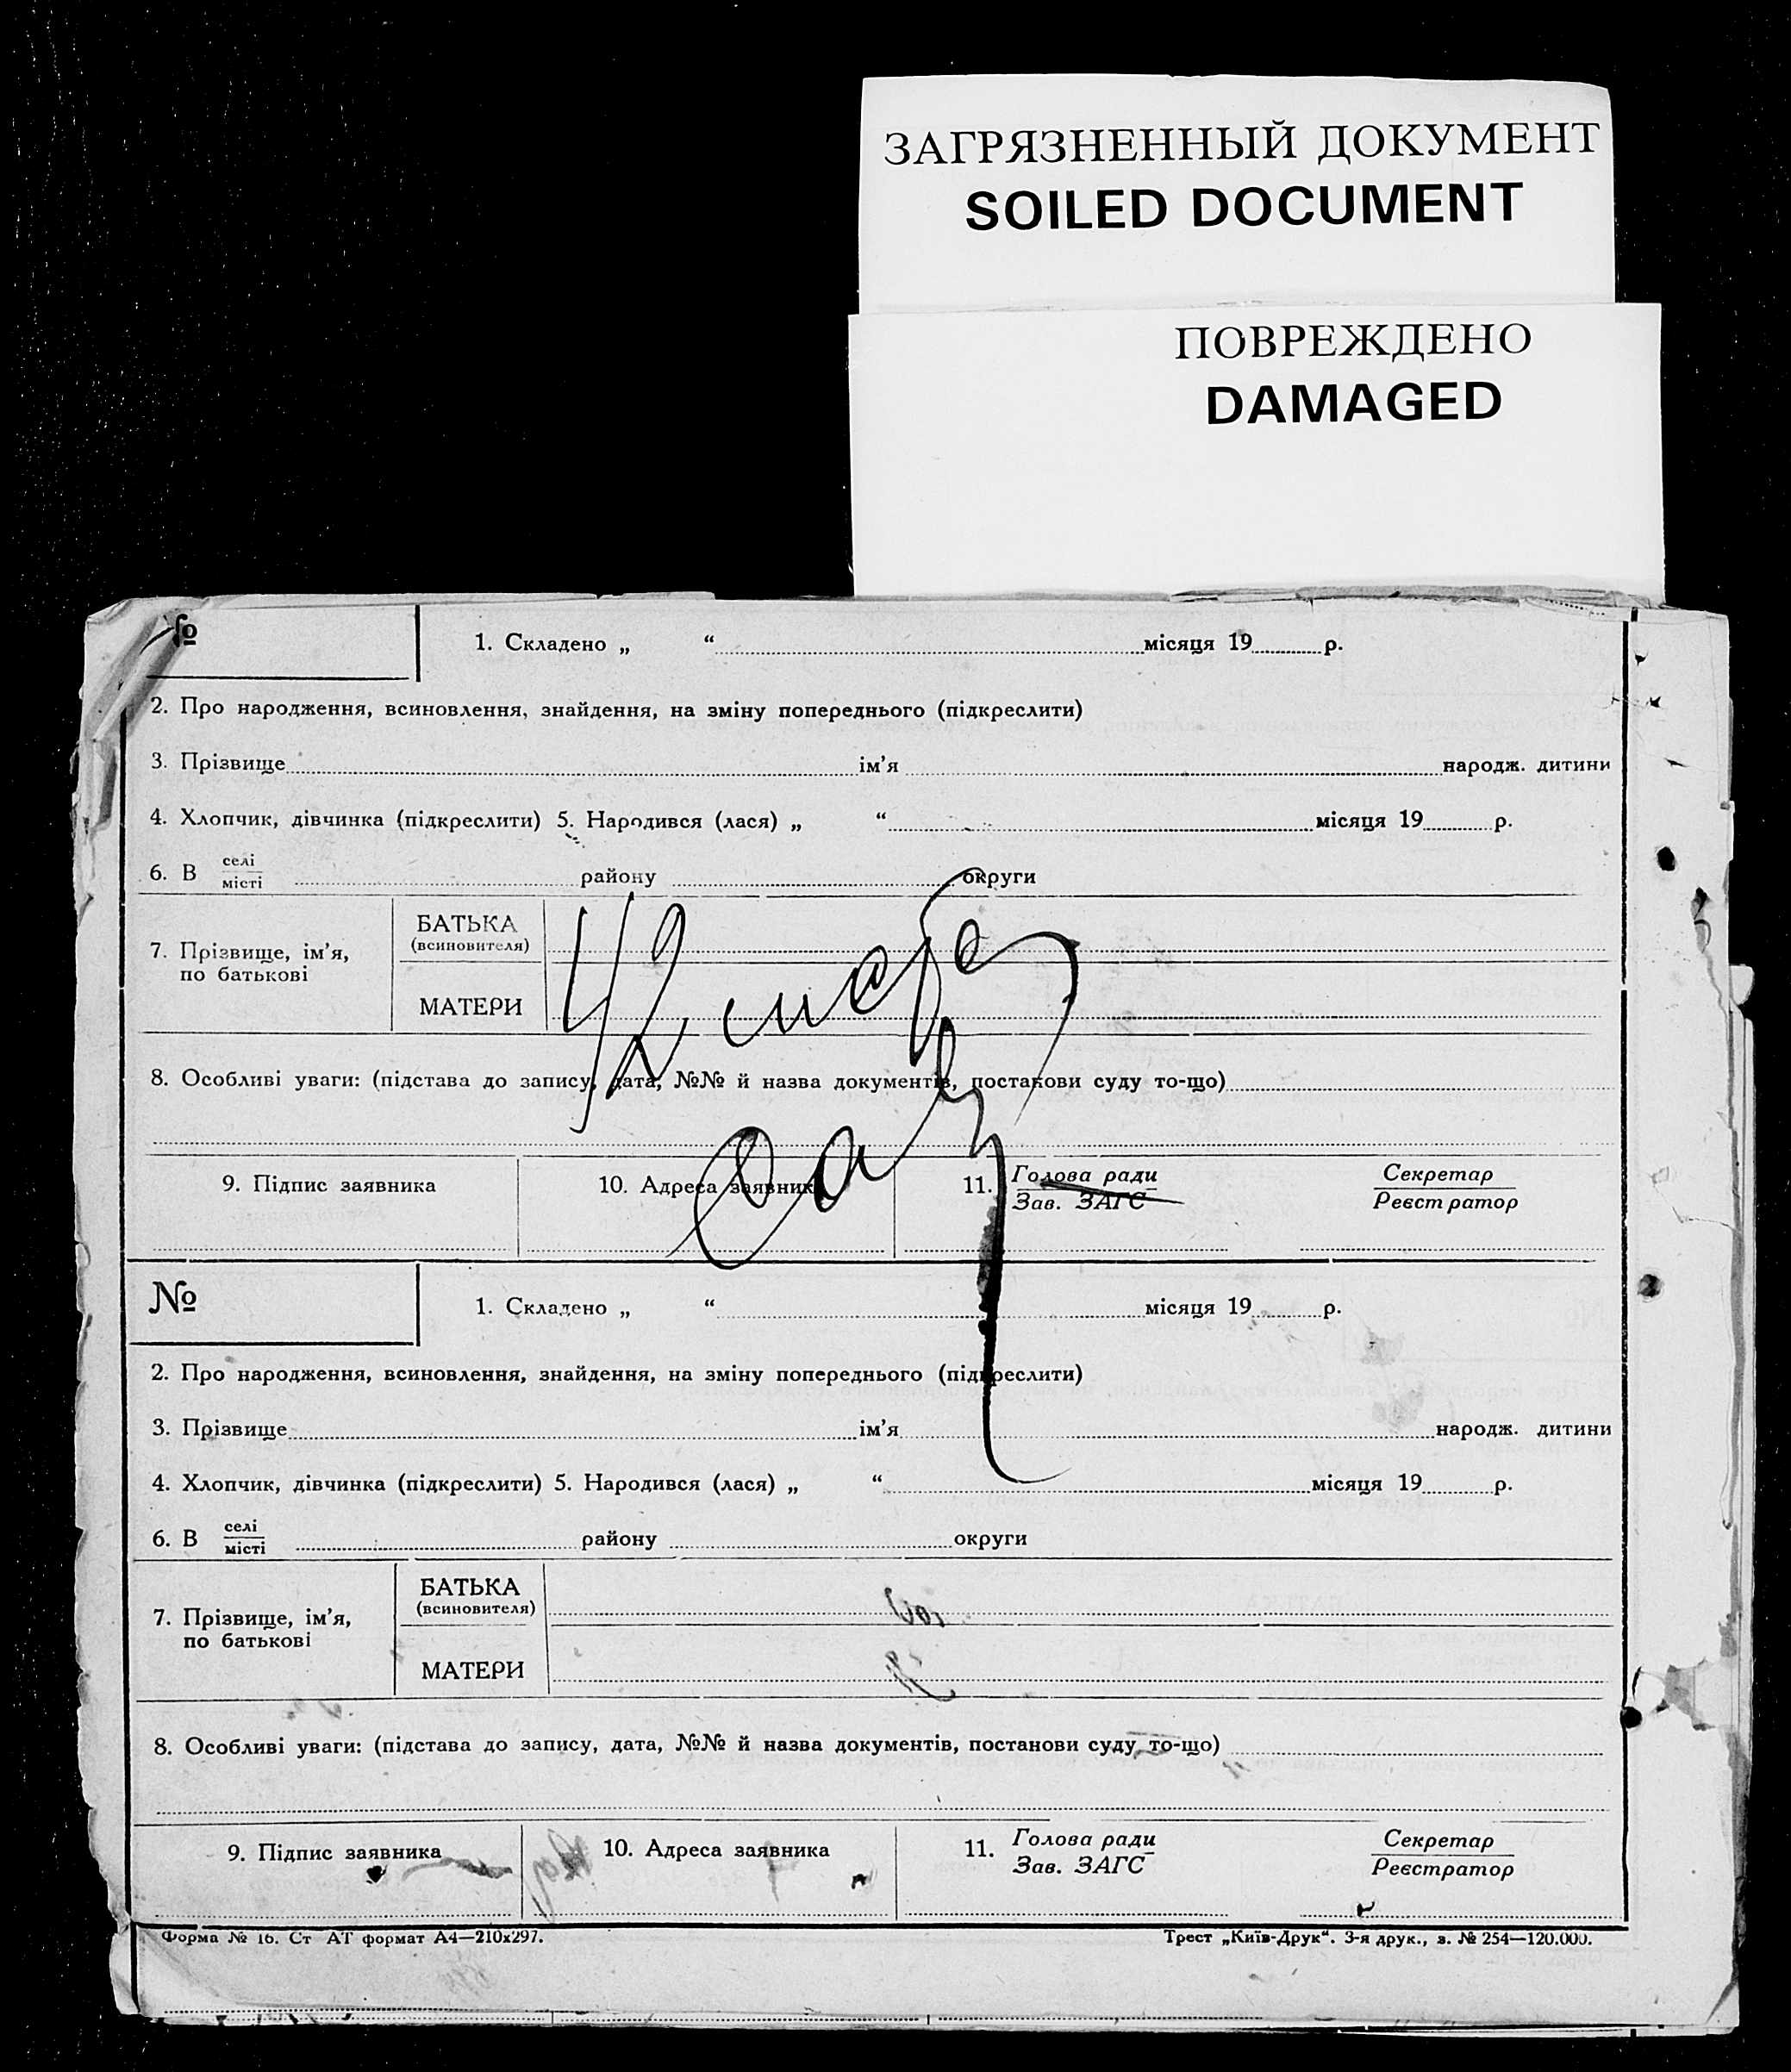 ЗАГРЯЗНЕННЫЙ ДОКУМЕНТ
SOILED DOCUMENT
ПОВРЕЖДЕНО
DAMAGED
№
1. Складено „ “ місяця 19 р.
2. Про народження, всиновлення, знайдення, на зміну попереднього (підкреслити)
3. Прізвище ім’я народж. дитини
4. Хлопчик, дівчинка (підкреслити) 5. Народився (лася) „ “ місяця 19 р.
6. В селі місті району округи
7. Прізвище, ім’я, по батькові
БАТЬКА
(всиновителя)
МАТЕРИ
8. Особливі уваги: (підстава до запису, дата, №№ й назва документів, постанови суду то-що)
9. Підпис заявника
10. Адреса заявника
11. Голова ради
Зав. ЗАГС
Секретар
Реєстратор
№
1. Складено „ “ місяця 19 р.
2. Про народження, всиновлення, знайдення, на зміну попереднього (підкреслити)
3. Прізвище ім’я народж. дитини
4. Хлопчик, дівчинка (підкреслити) 5. Народився (лася) „ “ місяця 19 р.
6. В селі місті району округи
7. Прізвище, ім’я, по батькові
БАТЬКА
(всиновителя)
МАТЕРИ
8. Особливі уваги: (підстава до запису, дата, №№ й назва документів, постанови суду то-що)
9. Підпис заявника
10. Адреса заявника
11. Голова ради
Зав. ЗАГС
Секретар
Реєстратор
Форма № 16. Ст АТ формат А4—210х297.
Трест „Київ-Друк“. 3-я друк., з. № 254—120.000.